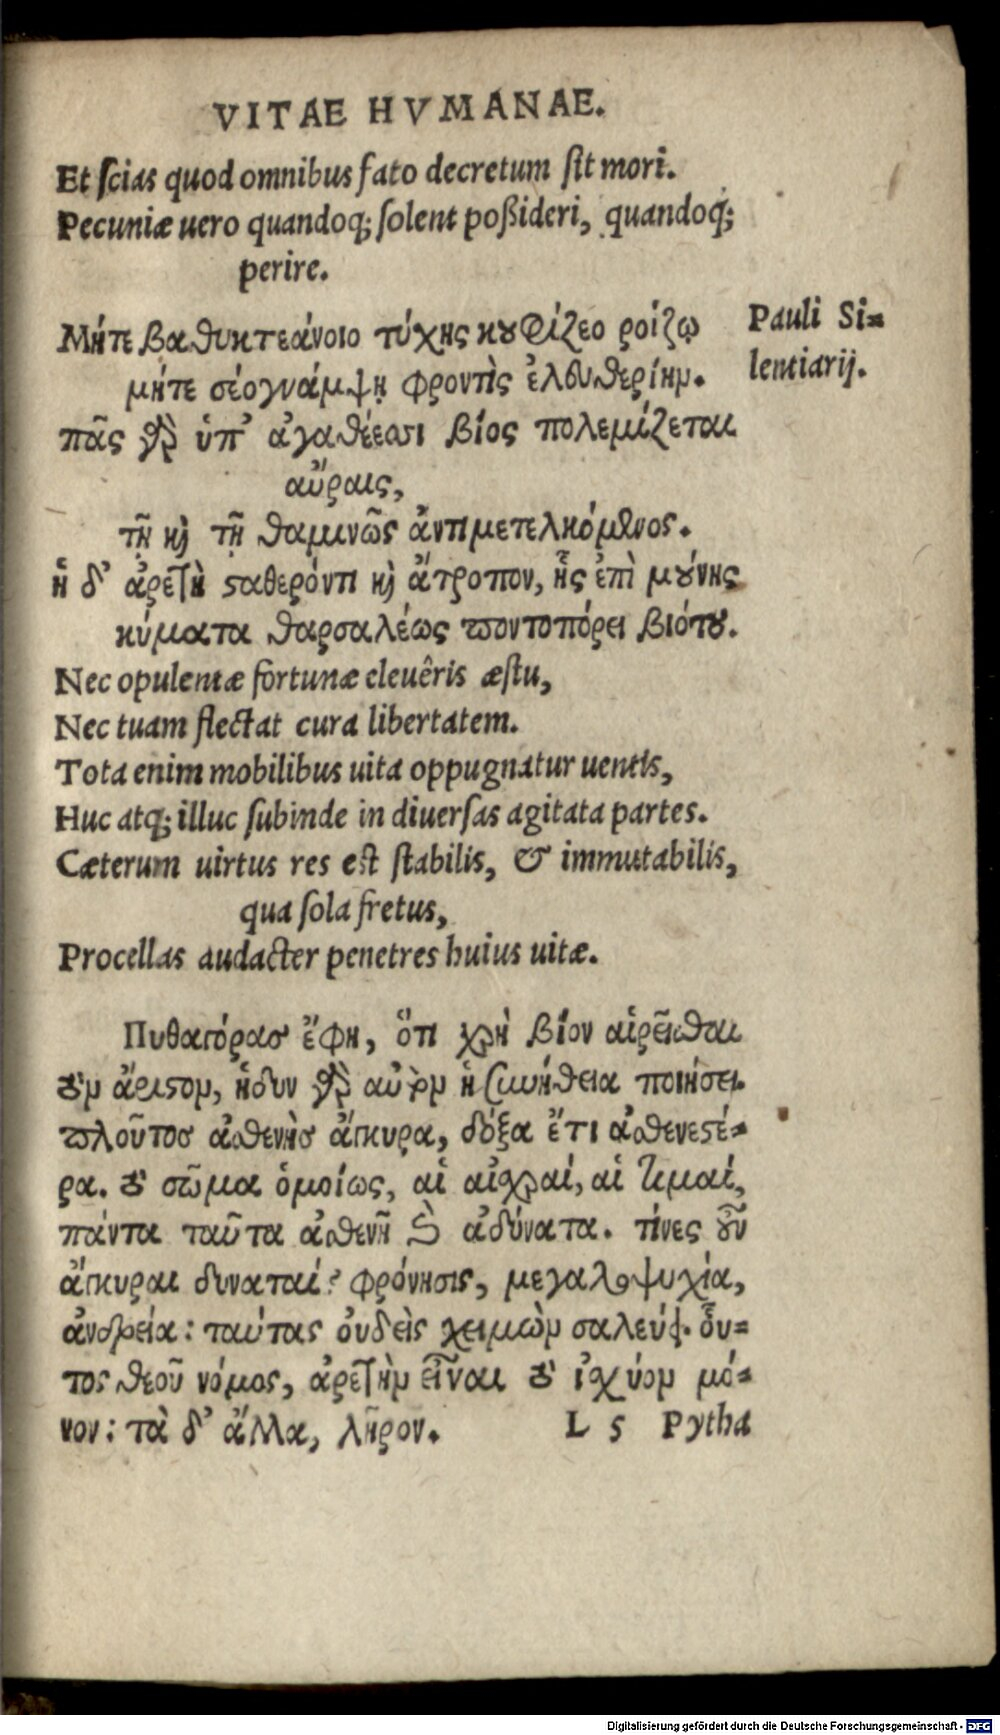 VITAE HVMANAE.
Et ſcias quod omnibus fato decretum ſit mori.
Pecuniæ uero quandoq; ſolent poßideri, quandoq;
perire.
Μήτε βαθυκτεάνοιο τύχης κουφίζεο ῥοίζῳ
Pauli Si=
μήτε σέο γνάμψῃ φροντὶς ἐλευθερίην.
lentiarij.
πᾶς γὰρ ὑπ' ἀγαθέεσσι βίος πολεμίζεται
αὔραις,
τῇ καὶ τῇ θαμινῶς ἀντιμετελκόμενος.
ἡ δ' ἀρετὴ σταθερόν τι καὶ ἄτροπον, ἧς ἐπὶ μούνης
κύματα θαρσαλέως ποντοπόρει βιότου.
Nec opulentæ fortunæ eleuêris æſtu,
Nec tuam flectat cura libertatem.
Tota enim mobilibus uita oppugnatur uentis,
Huc atq; illuc ſubinde in diuerſas agitata partes.
Cæterum uirtus res est ſtabilis, & immutabilis,
qua ſola fretus,
Procellas audacter penetres huius uitæ.
Πυθαγόρας ἔφη, ὅτι χρὴ βίον αἱρεῖσθαι
τὸν ἄριστον, ἡδὺν γὰρ αὐτὸν ἡ συνήθεια ποιήσει.
πλοῦτος ἀσθενὴς ἄγκυρα, δόξα ἔτι ἀσθενεστέ=
ρα. τὸ σῶμα ὁμοίως, αἱ ἀρχαί, αἱ τιμαί,
πάντα ταῦτα ἀσθενῆ καὶ ἀδύνατα. τίνες οὖν
ἄγκυραι δυναταί? φρόνησις, μεγαλοψυχία,
ἀνδρεία: ταύτας οὐδεὶς χειμὼν σαλεύει. οὗ=
τος θεοῦ νόμος, ἀρετὴν εἶναι τὸ ἰσχύον μό=
νον: τὰ δ' ἄλλα, λῆρον.
L 5 Pytha